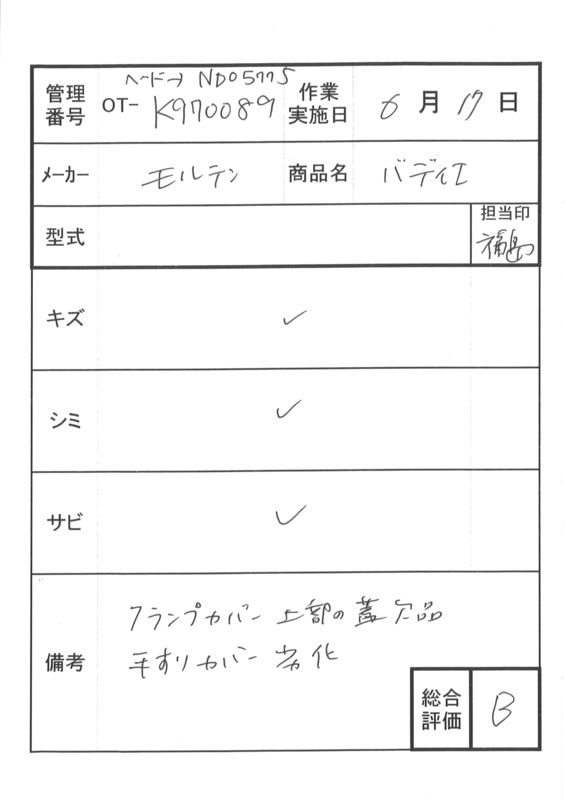 ベード→ ND05775
管理番号 OT- K970089 作業実施日 6月17日
メーカー モルテン 商品名 バディエ
型式 担当印 福島
キズ ✓
シミ ✓
サビ ✓
備考 クランプカバー 上部の蓋欠品
手すりカバー 劣化
総合評価 B